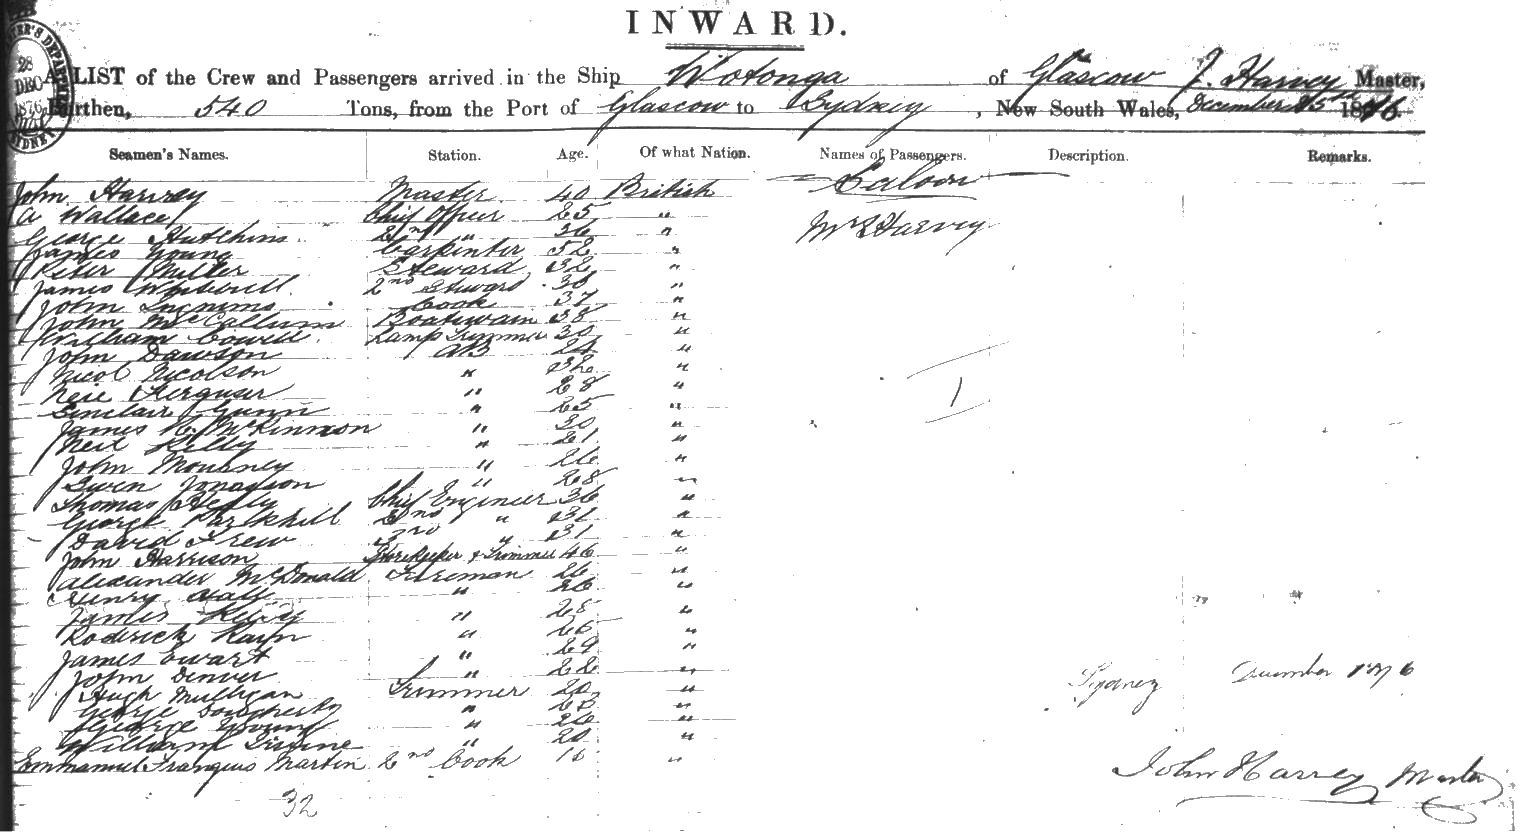 INWARD.
28
DEC
1876
SYDNEY
A LIST of the Crew and Passengers arrived in the Ship Wotonga of Glascow J. Harvey Master,
Burthen, 540 Tons, from the Port of Glascow to Sydney, New South Wales, December 25 1876.
Seamen's Names. Station. Age. Of what Nation. Names of Passengers. Description. Remarks.
John Harvey Master 40 British Saloon
A Wallace Chief Officer 25 "
George Hutchins 2nd " 36 " Mrs Harvey
James Young Carpenter 52 "
Peter Miller Steward 32 "
James 2nd Steward 30 "
John Cook 37 "
John McCallum Boatswain 38 "
William Cowell Lamp Trimmer 30 "
John Dawson AB 24 "
Nicol Nicolson " 32 "
Neil Ferguser " 28 "
Sinclair Gunn " 25 " 1
James McKinnon " 30 "
Neil Kelly " 21 "
John " 26 "
Swen " 28 "
Thomas Chief Engineer 36 "
George Parkhill 2nd " 31 "
David Frew 3rd " 31 "
John Harrison Storekeeper & Trimmer 46 "
Alexander McDonald Fireman 26 "
Henry " 26 "
James " 28 "
Roderick " 25 "
James Ewart " 29 "
John Denver " 22 "
Hugh Mulligan Trimmer 20 "
George Dougherty " 28 "
George Young " 26 "
William Irvine " 20 "
Emmanuel François Martin 2nd Cook 16 "
Sydney December 1876
John Harvey Master
32